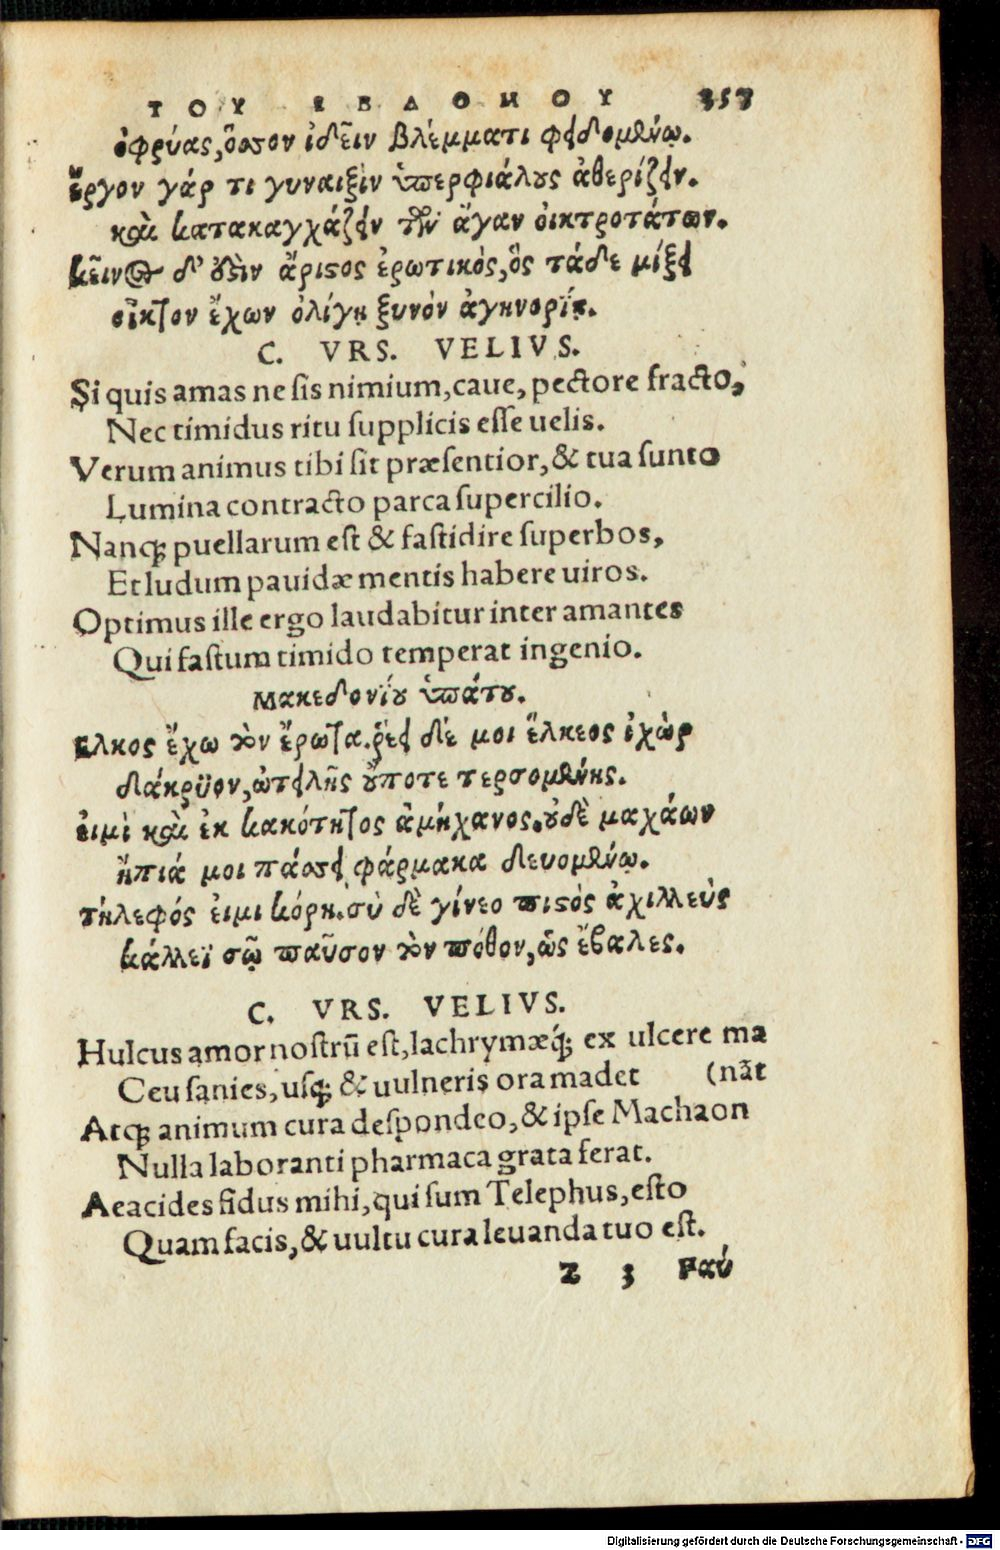 ΤΟΥ ΕΒΔΟΜΟΥ 357
ὀφρύας, ὅσσον ἰδεῖν βλέμματι φειδομένῳ.
ἔργον γάρ τι γυναιξὶν ὑπερφιάλους ἀθερίζειν.
καὶ κατακαγχάζειν τῶν ἄγαν οἰκτροτάτων.
κεῖνος δ' οὖν ἄριστος ἐρωτικὸς, ὃς τάδε μίξει
οἶκτον ἔχων ὀλίγῃ ξυνὸν ἀγηνορίῃ.
C. VRS. VELIVS.
Si quis amas ne sis nimium, caue, pectore fracto,
Nec timidus ritu supplicis esse uelis.
Verum animus tibi sit præsentior, & tua sunto
Lumina contracto parca supercilio.
Nanq; puellarum est & fastidire superbos,
Et ludum pauidæ mentis habere uiros.
Optimus ille ergo laudabitur inter amantes
Qui fastum timido temperat ingenio.
Μακεδονίου ὑπάτου.
Ελκος ἔχω τὸν ἔρωτα. ῥέει δέ μοι ἕλκεος ἰχὼρ
δάκρϋον, ὠτειλῆς οὔποτε τερσομένης.
εἰμὶ καὶ ἐκ κακότητος ἀμήχανος. οὐδὲ μαχάων
ἤπιά μοι πάσσει φάρμακα δευομένῳ.
τήλεφός εἰμι κόρη. σὺ δὲ γίνεο πιστὸς ἀχιλλεὺς
κάλλεϊ σῷ παῦσον τὸν πόθον, ὡς ἔβαλες.
C. VRS. VELIVS.
Hulcus amor nostrũ est, lachrymæq́; ex ulcere ma
Ceu sanies, usq; & uulneris ora madet (nãt
Atq; animum cura despondeo, & ipse Machaon
Nulla laboranti pharmaca grata ferat.
Aeacides fidus mihi, qui sum Telephus, esto
Quam facis, & uultu cura leuanda tuo est.
Z 3 Ραύ
Digitalisierung gefördert durch die Deutsche Forschungsgemeinschaft - DFG